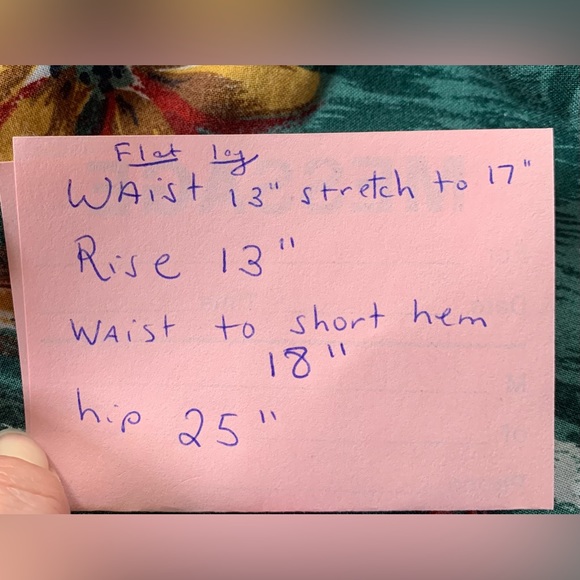 Flat lay
WAist 13" stretch to 17"
Rise 13"
WAist to short hem
18"
hip 25"